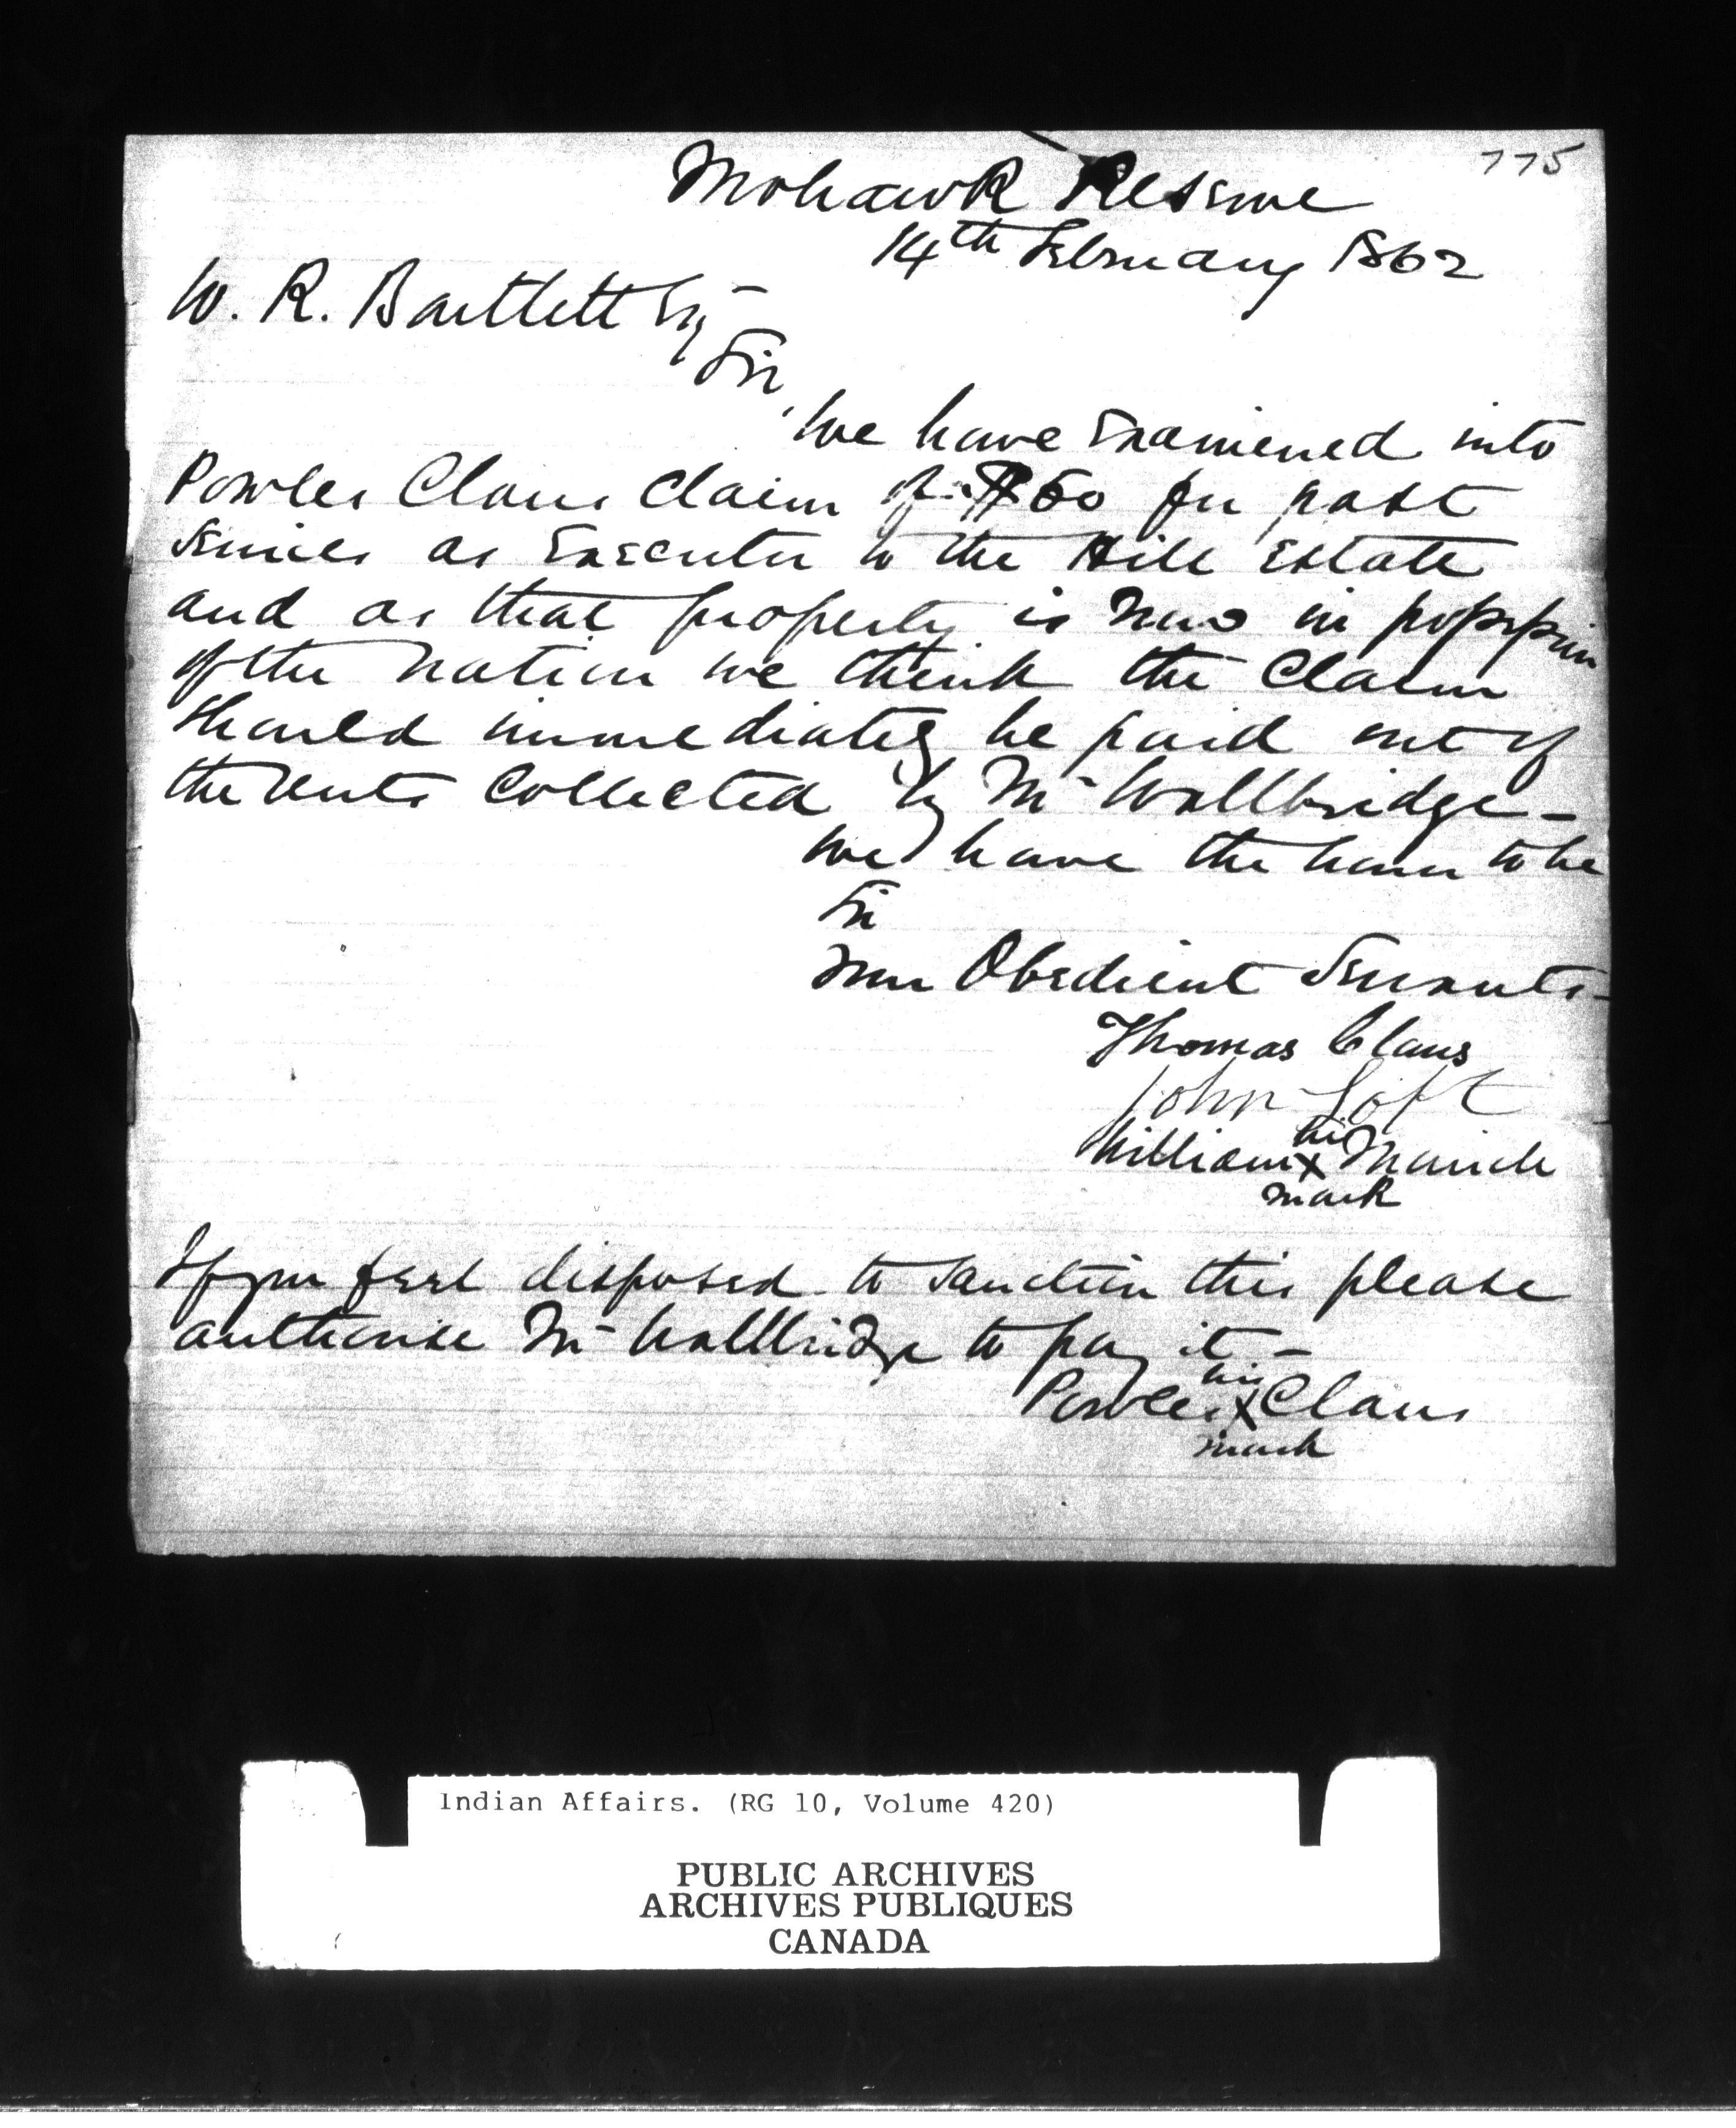 775
Mohawk Reserve
14th February 1862
W. R. Bartlett Esq
Sir,
We have Examened into
Powles Claus Claim of $60 for past
Services as Executor to the Hill Estate
and as that property is now in possession
of the Nation we think the Claim
should immediately be paid out of
the rents Collected by Mr Wallbridge -
We have the honor to be
Sir
Your Obedient Servants -
Thomas Claus
John Loft
his
William X Maricle
mark
If you feel disposed to sanction this please
authorise Mr Wallbridge to pay it -
his
Powles X Claus
mark
Indian Affairs. (RG 10, Volume 420)
PUBLIC ARCHIVES
ARCHIVES PUBLIQUES
CANADA